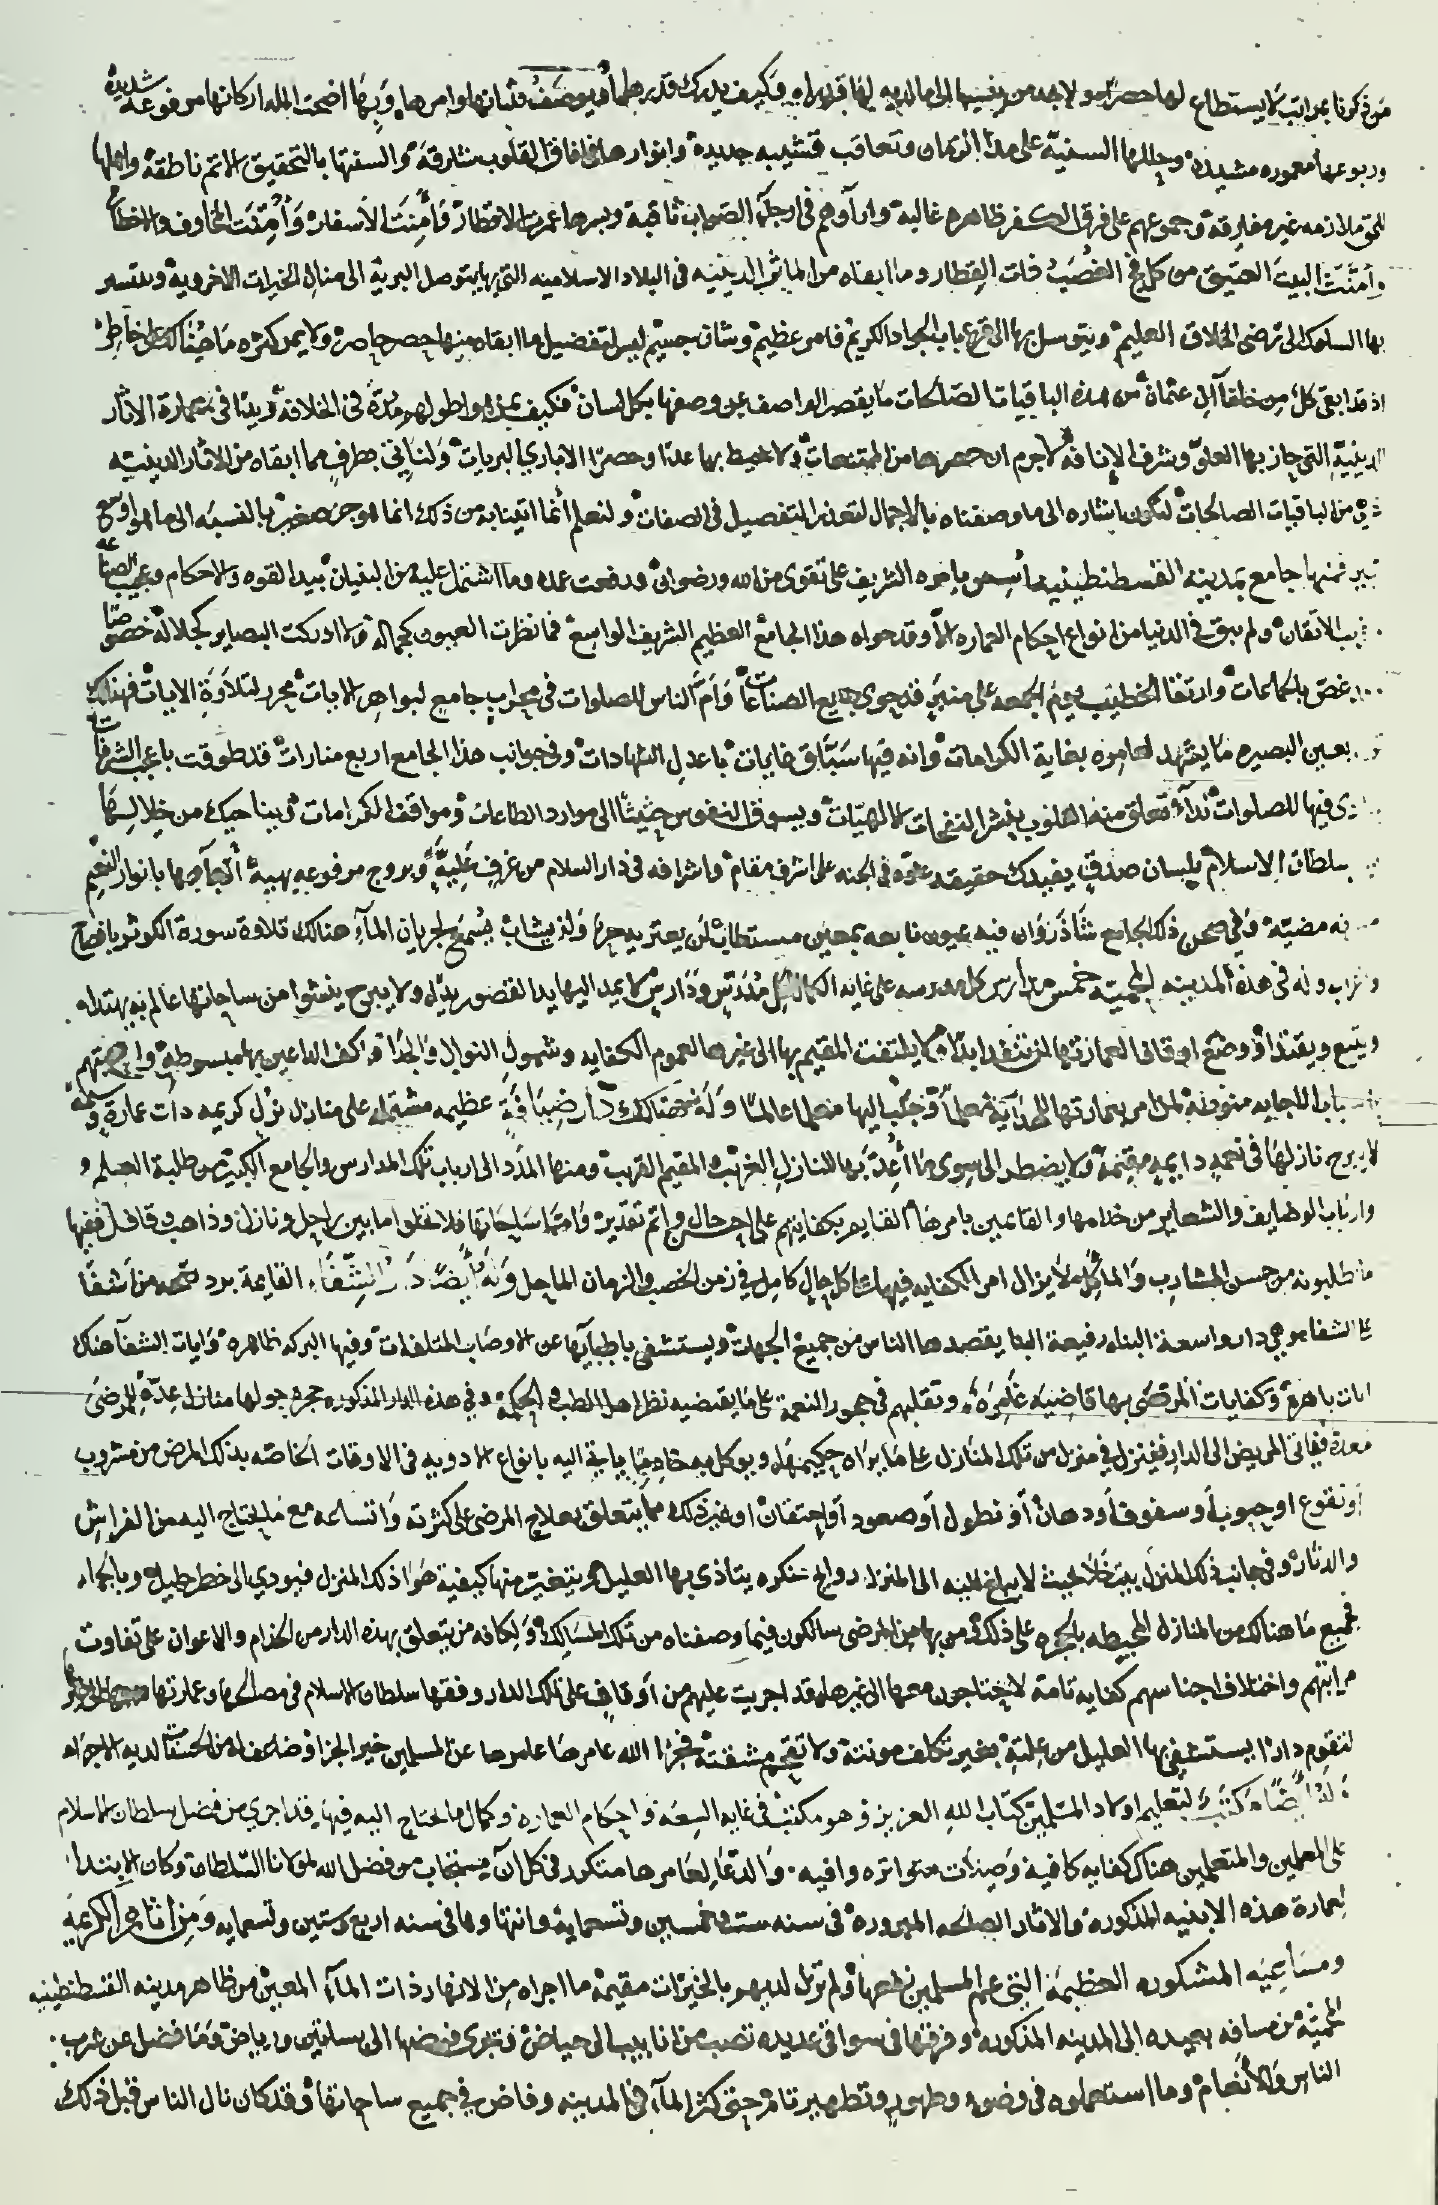 من ذكرنا بمراتب لا يستطاع لها حصرا ولا يعد من نفسها الى ما لديه فكيف يدرك قدرها او يوصف شانها وامرها وبها اضحت المله اركانها مرفوعة شديدة
وربوعها معموره مشيدة وحللها السنية على مدا الزمان وتعاقب قشيبه جديدة وانوارها في افاق القلوب شارقة والسنتها بالتحقيق الاتم ناطقة واهلها
للحق ملازمه غير مفارقة وجموعهم على فرق الكفر ظاهره غالبة واراوهم في ارجاء الصواب ثاقبة وبسرها عمرت الاقطار وأمنت الأسفار وأمنت المخاوف والاخطار
وأمنت البيت العتيق من كل فج العصب ذات القطار وما ابقاه من الماثر الدينيه في البلاد الاسلاميه التي بها يتوصل البرية الى منال الخيرات الاخروية ويتيسر
بها السلوك الى رضى الخلاق العليم ويتوسل بها الى قرع باب الجواد الكريم فامر عظيم وشان جسيم ليس لتفضيل ما ابقاه منها حصر حاصر ولا يمر كثره ما هنالك على خاطر
اذ قد ابقى كل من خلفا آل عثمان من هذه الباقيات الصالحات ما يقصر الواصف عن وصفها بكل لسان فكيف بمن هو اطولهم مدة في الخلافة ويدا في عمارة الاثار
الدينية التي حاز بها العلو وشرف الإنافة لا جرم ان حصرها من الممتنعات ولا يحيط بها عدا وحصرا الا باري البريات ولنأتي بطرف مما ابقاه من الاثار الدينيه
شي من الباقيات الصالحات لتكون اشاره الى ما وصفناه بالاجمال لتعذر التفصيل في الصفات ولنعلم أنما اتينا به من ذلك انما هو جزء صغير بالنسبه الى ما هو اوسع
فمنها جامع بمدينه القسطنطينيه أسس بامره الشريف على تقوى من الله ورضوان ورفعت عمده وما اشتمل عليه من البنيان بيد القوه والاحكام وعجيب الصناعه
الاتقان ولم يبق في الدنيا من انواع احكام العماره الا وقد حواه هذا الجامع العظيم الشريف الواسع فما نظرت العيون كجماله ولا ادركت البصاير كجلاله خصوصا
غص بالجماعات وارتقا الخطيب يوم الجمعه على منبر قد حوى بديع الصناعات وأم الناس للصلوات في محراب جامع لبواهر الايات محرر لتلاوة الايات فهنالك
بعين البصيره ما يشهد لعامره بغاية الكرامات وانه فيها سباق غايات باعدل الشهادات وفي جوانب هذا الجامع اربع منارات قد طوقت باعجب الشرفات
فيها للصلوات نداء تعلق منه القلوب بنشر النفحات الالهيات ويسوق النفوس حثيثا الى موارد الطاعات ومواقف الكرامات ويناجيك من خلالها
سلطان الاسلام بلسان صدق يفيدك حقيقة علوه في الجنه على اشرف مقام واشرافه في دار السلام من غرف علية وبروج مرفوعه بهية ارجاها بانوار النعيم
مضية وفي صحن ذلك الجامع شاذروان فيه عيون نابعه بمعين مستطاب لن يعتريه جزر ولن يشاب يسمع لجريان الماء هنالك تلاوة سورة الكوثر بافصح
وله في هذه المدينه المحمية خمس مدارس كل مدرسه على غايه الكمال لكل مدرس ودارس لا يمد اليها يد القصور يداه ولا يبرح ينشوا من ساحاتها عالم به يهتدا
ويتبع ويقتدا ووضع اوقافا لعمارتها لن تنفد ابدا لا يلتفت المقيم بها الى غيرها لعموم الكفايه وشمول النوال والجدا واكف الداعين بها مبسوطة وادعيتهم
باسباب الاجابه منوطة وله هنالك دار ضيافة عظيمه مشتمله على منازل نزل كريمه ذات عمارة وسيمة
لا يبرح نازلها في نعمه دايمه مقيمة ولا يضطر الى سوى ما أعد بها للنازل الغريب والمقيم القريب ومنها المدد الى ارباب تلك المدارس والجامع الكبير من طلبة العلم و
وارباب الوظايف والشعاير من خدامها والقائمين بامرها القايم بكفايتهم على احسن حال واتم تقدير وأما ساحاتها فلا تخلوا ما بين راحل ونازل وذاهب وقافل ففيها
ما طلبونه من حسن المشارب والمآكل لا يزال امر الكفايه فيها على كل حال كامل في زمن الخصب والزمان الماحل وله أيضا دار الشفاء القايمة برد صحه من أشفا
على الشفا وهي دار واسعة البناء رفيعة البنا يقصدها الناس من جميع الجهات ويستشفى باطبايها عن الاوصاب المتلفات وفيها البركه ظاهره وايات الشفا هنالك
ايات باهرة وكفايات المرضى بها قاضيه غامرة وتقلبهم في حجور النعمة على ما يقتضيه نظر اهل الطب والحكمة وفي هذه الدار المذكوره حجره حولها منازل عدة للمرضى
معدة فياتي المريض الى الدار فينزل في منزل من تلك المنازل على ما يراه حكيمها ويوكل به خادما ياتي اليه بانواع الادويه في الاوقات الخاصه بذلك المرض من مشروب
أو نقوع او حبوب أو سفوف أو دهان أو نطول أو صعود أو احتقان او غير ذلك مما يتعلق بعلاج المرضى على كثرته واتساعه مع ما يحتاج اليه من الفراش
والدثار وفي جانب ذلك المنزل بيت خلا بحيث لا يبلغ منه الى المنزل روايح منكره يتاذى بها العليل او يتغير منها كيفية هوا ذلك المنزل فيودي الى خطر جليل وبالجملة
فجميع ما هنالك من المنازل المحيطه بالحجره على ذلك ومن بها من المرضى سالكون فيما وصفناه من تلك المسالك ولكافه من يتعلق بهذه الدار من الخدام والاعوان على تفاوت
مراتبهم واختلاف اجناسهم كفايه تامة لا يحتاجون معها الى غيرها قد اجريت عليهم من أوقاف على تلك الدار وقفها سلطان الاسلام في مصالحها وعمارتها
لتقوم دارا يستشفي بها العليل من علته بغير تكلف مونته ولا تقحم مشقة فجزا الله عامرها عن المسلمين خير الجزا وضاعف له من الحسنات لديه الاجزاء
وله أيضا مكتب لتعليم اولاد المسلمين كتاب الله العزيز وهو مكتب في غايه السعة واحكام العماره وكمال ما يحتاج اليه فيها قد اجرى من فضل سلطان الاسلام
على المعلمين والمتعلمين هناك كفايه كافية وصلات متواتره وافيه والدعا لعامرها متكرر في كل آن مستجاب من فضل الله لمولانا السلطان وكان الابتدا
لعمارة هذه الابنيه المذكورة والاثار الصالحه المبرورة في سنه ست وخمسين وتسعماية وانتهاوها في سنه اربع وستين وتسعمايه ومن اثاره الكريمة
ومساعيه المشكوره العظيمة التي عم المسلمين نفعها ولم تزل لديهم بالخيرات مقيمة ما اجراه من الانهار ذات الماء المعين من ظاهر مدينه القسطنطينيه
المحمية من مسافه بعيده الى المدينه المذكورة وفرقها في سواقي عديده تصب من انابيب الى حياض وتجرى فيضها الى بساتين ورياض وما فضل عن شرب
الناس والأنعام وما استعملوه في وضوء وطهور وتطهير تام حتى كثر الماء في المدينه وفاض في جميع ساحاتها وقد كان نال الناس قبل ذلك